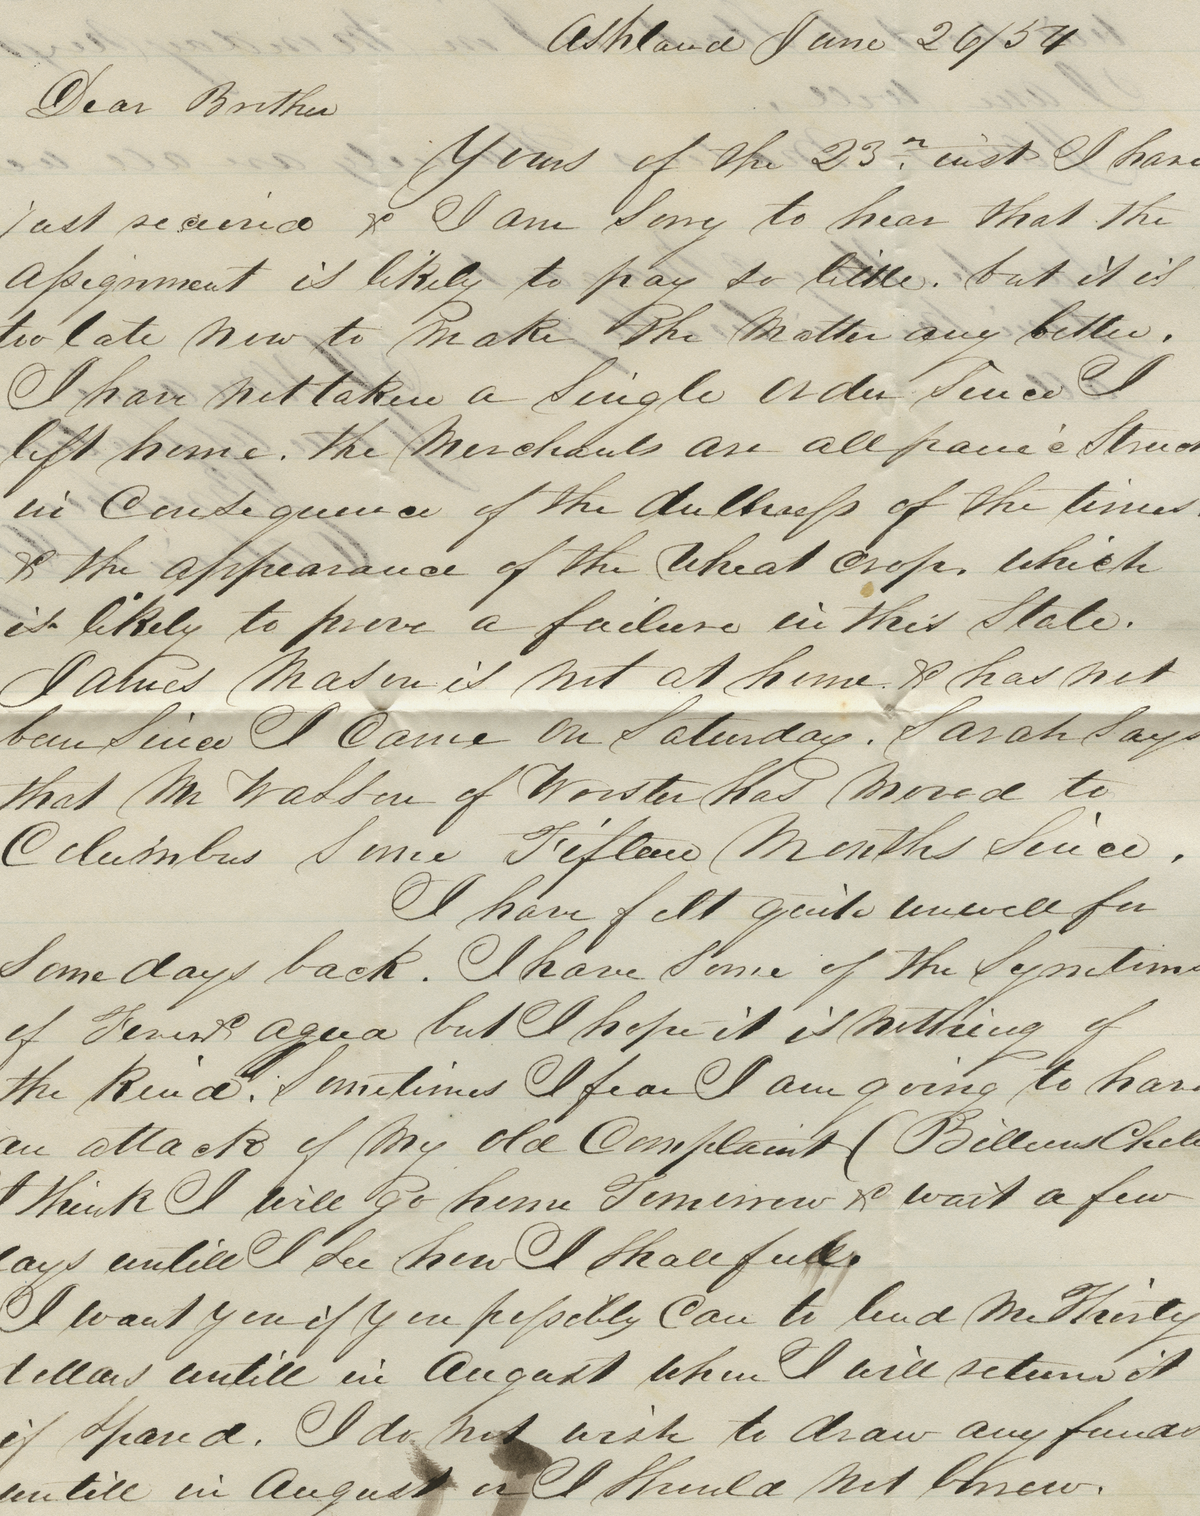 Ashland June 26/54
Dear Brother
Yours of the 23rd inst I have
just received & I am sorry to hear that the
assignment is likely to pay so little. but it is
too late now to make the matter any better.
I have not taken a single order since I
left home. the Merchants are all panic struck
in Consequence of the dullness of the times.
& the appearance of the wheat crop, which
is likely to prove a failure in this State.
James Mason is not at home & has not
been since I came on Saturday. Sarah says
that Mr Watson of Wooster has moved to
Columbus some Fifteen Months since.
I have felt quite unwell for
some days back. I have some of the Symtims
of Fever & agua but I hope it is nothing of
the kind. Sometimes I fear I am going to have
an attack of my old Complaint (Billious Cholic
I think I will go home Tomorrow & wait a few
days untill I see how I shall feel.
I want you if you possibly can to lend me Thirty
dollars untill in August when I will return it
if spared. I do not wish to draw any funds
untill in August or I should not borrow.